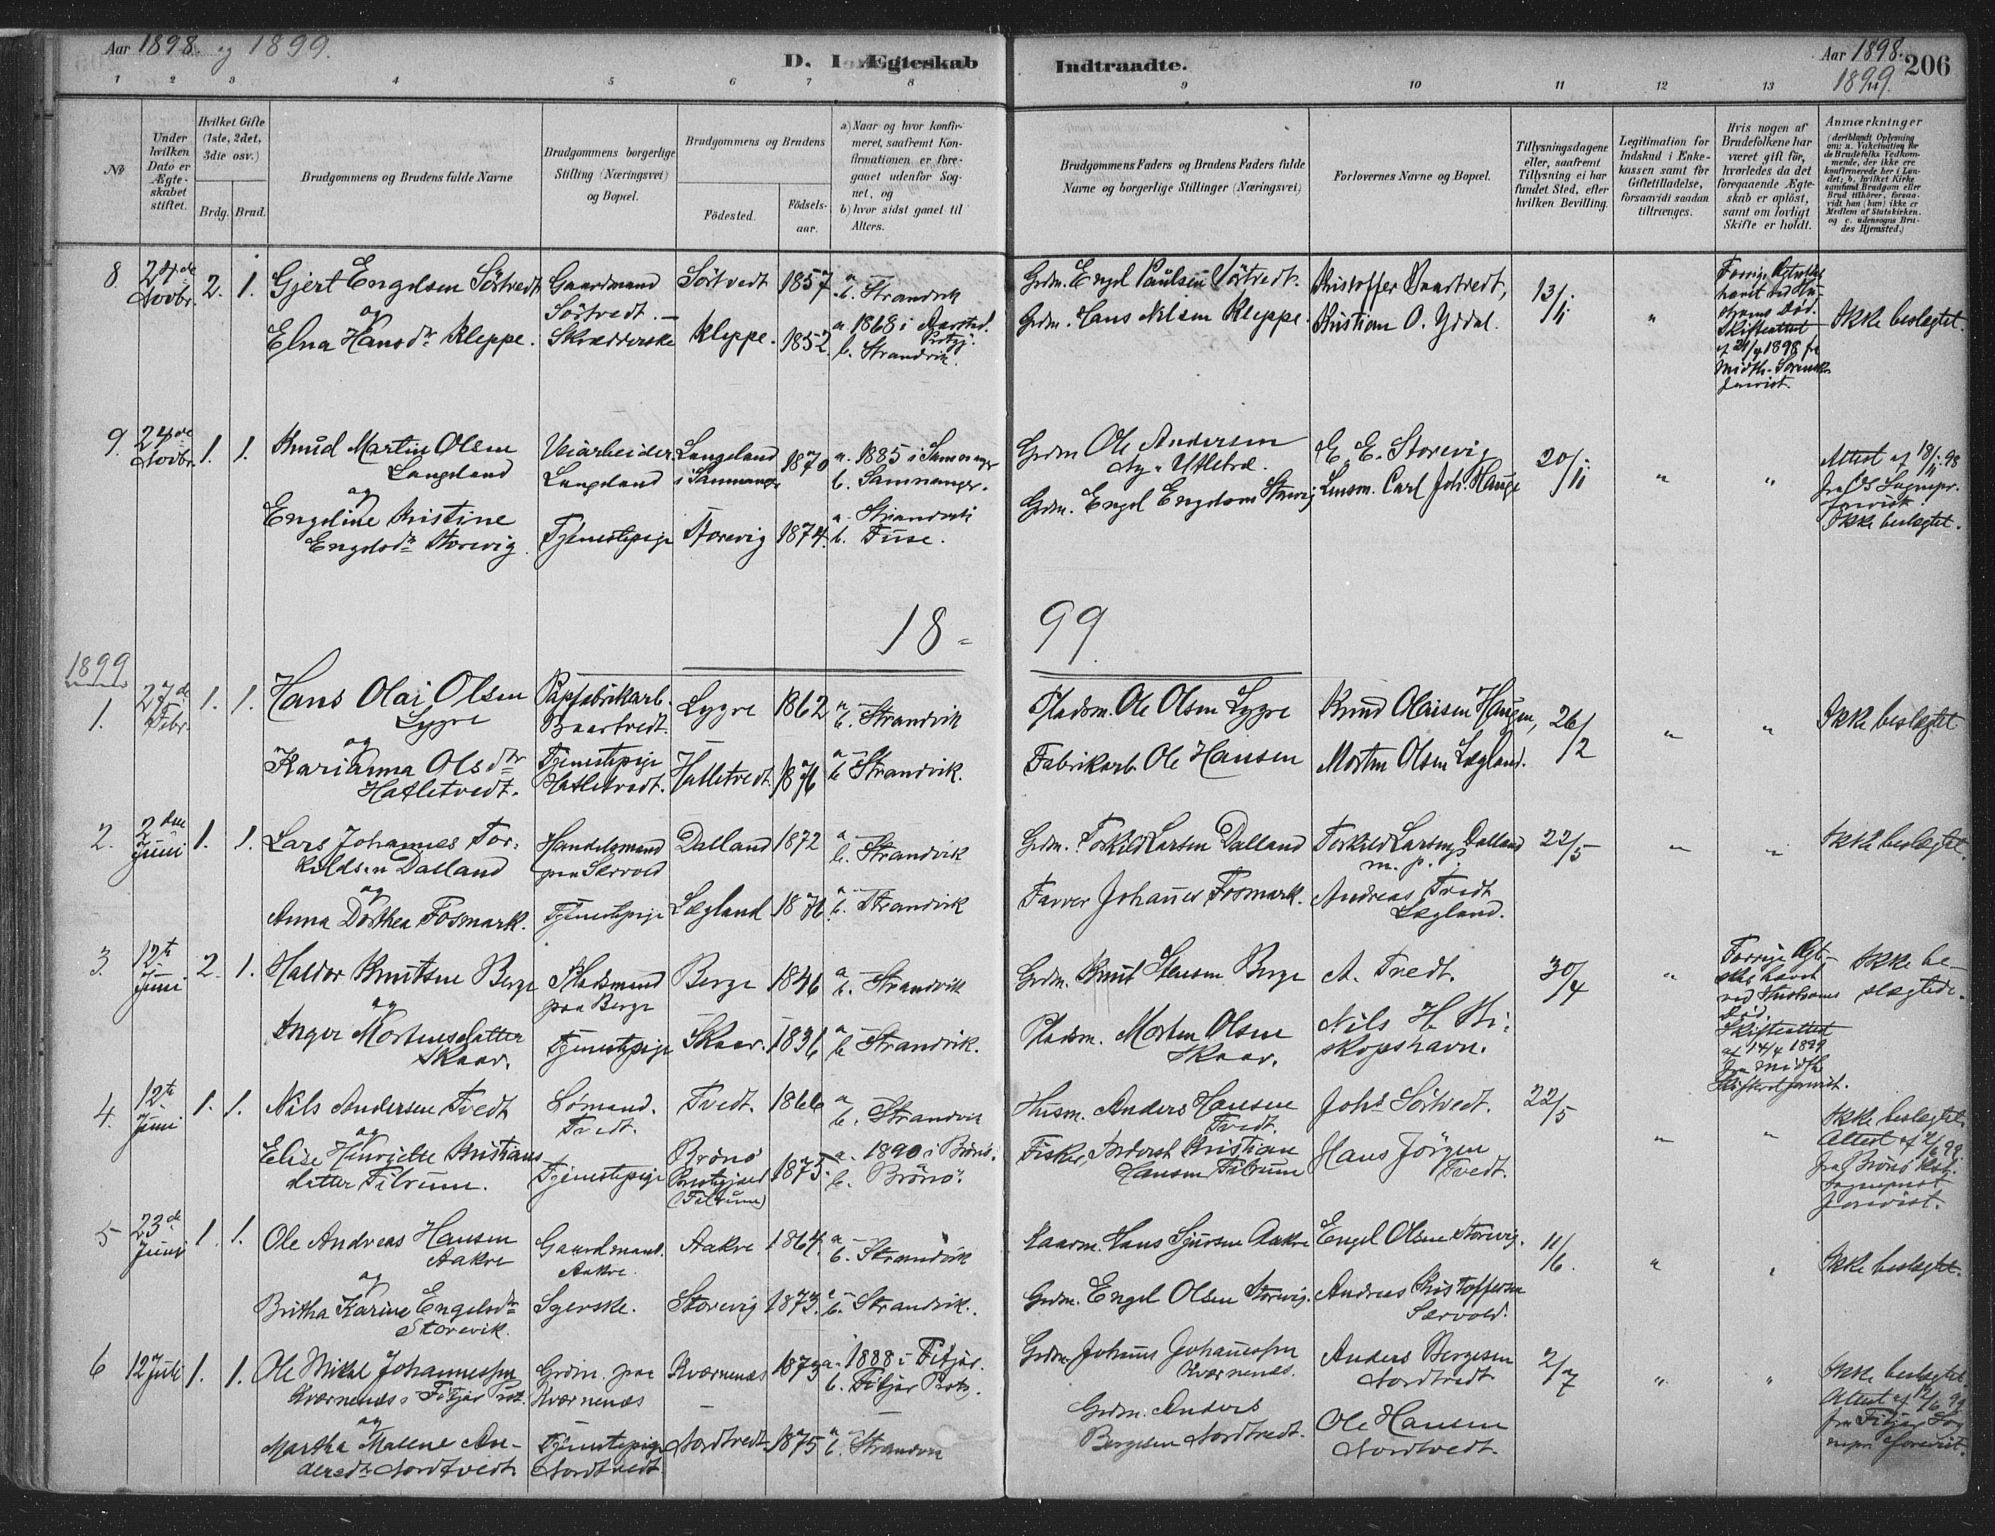 Aar 1898. og 1899.
D. I Ægteskab Indtraadte.
Aar 1898. 1899.
206
1 2 3 4 5 6 7 8 9 10 11 12 13
No
Under hvilken Dato er Ægteskabet stiftet.
Hvilket Gifte (1ste, 2det, 3die osv.)
Brdg. Brud.
Brudgommens og Brudens fulde Navne
Brudgommens borgerlige Stilling (Næringsvei) og Bopæl.
Brudgommens og Brudens
Fødested.
Fødselsaar.
a) Naar og hvor konfirmeret, saafremt Konfirmationen er foregaaet udenfor Sognet, og
b) hvor sidst gaaet til Alters.
Brudgommens Faders og Brudens Faders fulde Navne og borgerlige Stillinger (Næringsvei)
Forlovernes Navne og Bopæl.
Tillysningsdagene eller, saafremt Tillysning ei har fundet Sted, efter hvilken Bevilling.
Legitimation for Indskud i Enkekassen samt for Giftetilladelse, forsaavidt saadan tiltrænges.
Hvis nogen af Brudefolkene har været gift før, hvorledes da det foregaaende Ægteskab er opløst, samt om lovligt Skifte er holdt.
Anmærkninger
(deriblandt Oplysning om: a. Vakcination for de Brudefolks Vedkommende, der ikke ere konfirmerede her i Landet; b. hvilket Kirkesamfund Brudgom eller Brud tilhører, forsaavidt han (hun) ikke er Medlem af Statskirken, og c. udensogns Brudes Hjemsted.)
8 24de Novbr. 2. 1. Gjert Engelsen Sörtvedt Gaardmand Sörtvedt. Sörtvedt 1857 a. b. Strandvik Grdm. Engel Paulsen Sörtvedt. Kristoffer 13/11 " Ikke beslægtet.
og
Elna Hansdtr Kleppe. Skrædderske Kleppe. 1852. a 1868 i Aarstad Prstgj. b. Strandvik. Grdm. Hans Nilsen Kleppe. Kristian O. Yddal.
Skifteattest af 21/4 1898 fra
9. 24de Novbr. 1. 1. Knud Martin Olsen Langeland Veiarbeider Langeland Langeland i Samnanger 1870 a. 1885 i Samnanger b. Samnanger. Grdm Ole Andersen E. E. Storevig 20/11 " " Attest af 18/11 98 fra Sognepr. forevist. Ikke beslægtet.
og
Engeline Kristine Engelsdtr Storevig Tjenestepige Storevig 1874. a. Strandvik b. Fuse. Grdm. Engel Engelsen Storevig Lensm. Carl Joh. Hauge
18 = 99
1899
1. 27de Febr. 1. 1. Hans Olai Olsen Lygre Papfabrikarb. Baartvedt. Lygre 1862 a b. Strandvik Pladsm. Ole Olsen Lygre Knud Olaisen Haugen, 26/2 " " Ikke beslægtet
og
Karianna Olsdtr Hatletvedt. Tjenestepige Hatletvedt. Hatletvedt. 1876 a b Strandvik. Fabrikarb. Ole Hansen Morten Olsen Lægland.
2. 2den Juni 1. 1. Lars Johannes Torkildsen Dalland Handelsmand paa Særvold Dalland 1872 a b. Strandvik Grdm. Torkild Larsen Dalland Torkild Larsen Dalland m. p. 22/5 " " Ikke beslægtet.
og
Anna Dorthea Fosmark. Tjenestepige Lægland 1876 a b. Strandvik Farver Johannes Fosmark. Andreas Tvedt Lægland.
3. 12te Juni 2. 1. Haldor Knutsen Berge Pladsmand paa Berge Berge 1846 a b. Strandvik Grdm. Knut Stensen Berge A. Tvedt. 30/4 " Forrige Ægteskab hævet ved Hustruens Død. Skifteattest af 14/4 1899 fra Midth. Skifteret forevist. Ikke beslægtede.
og
Anger Mortensdatter Skaar. Tjenestepige Skaar. 1836 a b Strandvik. Pladsm. Morten Olsen Skaar. Nils H. Biskopshavn.
4. 12te Juni 1. 1. Nils Andersen Tvedt Sömand. Tvedt. Tvedt. 1866 a b. Strandvik Husm. Anders Hansen Tvedt. Johs Sörtvedt. 22/5 " " Ikke beslægtet. Attest af 2/6 99. fra Brönö forevist.
og
Elise Henrjette Kristiansdatter Tilrum. Tjenestepige Brönö Prestegjeld (Tilrum) 1875. a. 1890 i Brönö. b. Brönö. Fisker, Kristian Hansen Tilrum Hans Jörgen Tvedt.
5 23de Juni 1. 1. Ole Andreas Hansen Aakre Gaardmand. Aakre. Aakre 1864. a b. Strandvik Kaarm. Hans Sjursen Aakre Engel Olsen Storevig. 11/6. " " Ikke beslægtet.
og
Britha Karine Engelsdtr Storevik. Syerske. Storevig 1873. a b. Strandvik. Grdm. Engel Olsen Storevig. Andreas Kristoffersen Særvold.
6 12 Juli 1. 1. Ole Mikal Johannessen Kværnenæs, Fitjar Prst. Grdm. paa Kværnenæs Kværnenæs 1873 a. 1888 i Fitjar. b. Fitjar Prstgj. Grdm. Johannes Johannessen Kværnenæs. Anders Bergesen Nordtvedt 2/7 " " Ikke beslægtet. Attest af 12/6 99 fra Fitjar Sognepr. forevist.
og
Martha Malene Andersdtr Nordtvedt Tjenestepige Nordtvedt Nordtvedt 1875 a b Strandvik Grdm. Anders Bergesen Nordtvedt. Ole Hansen Nordtvedt.